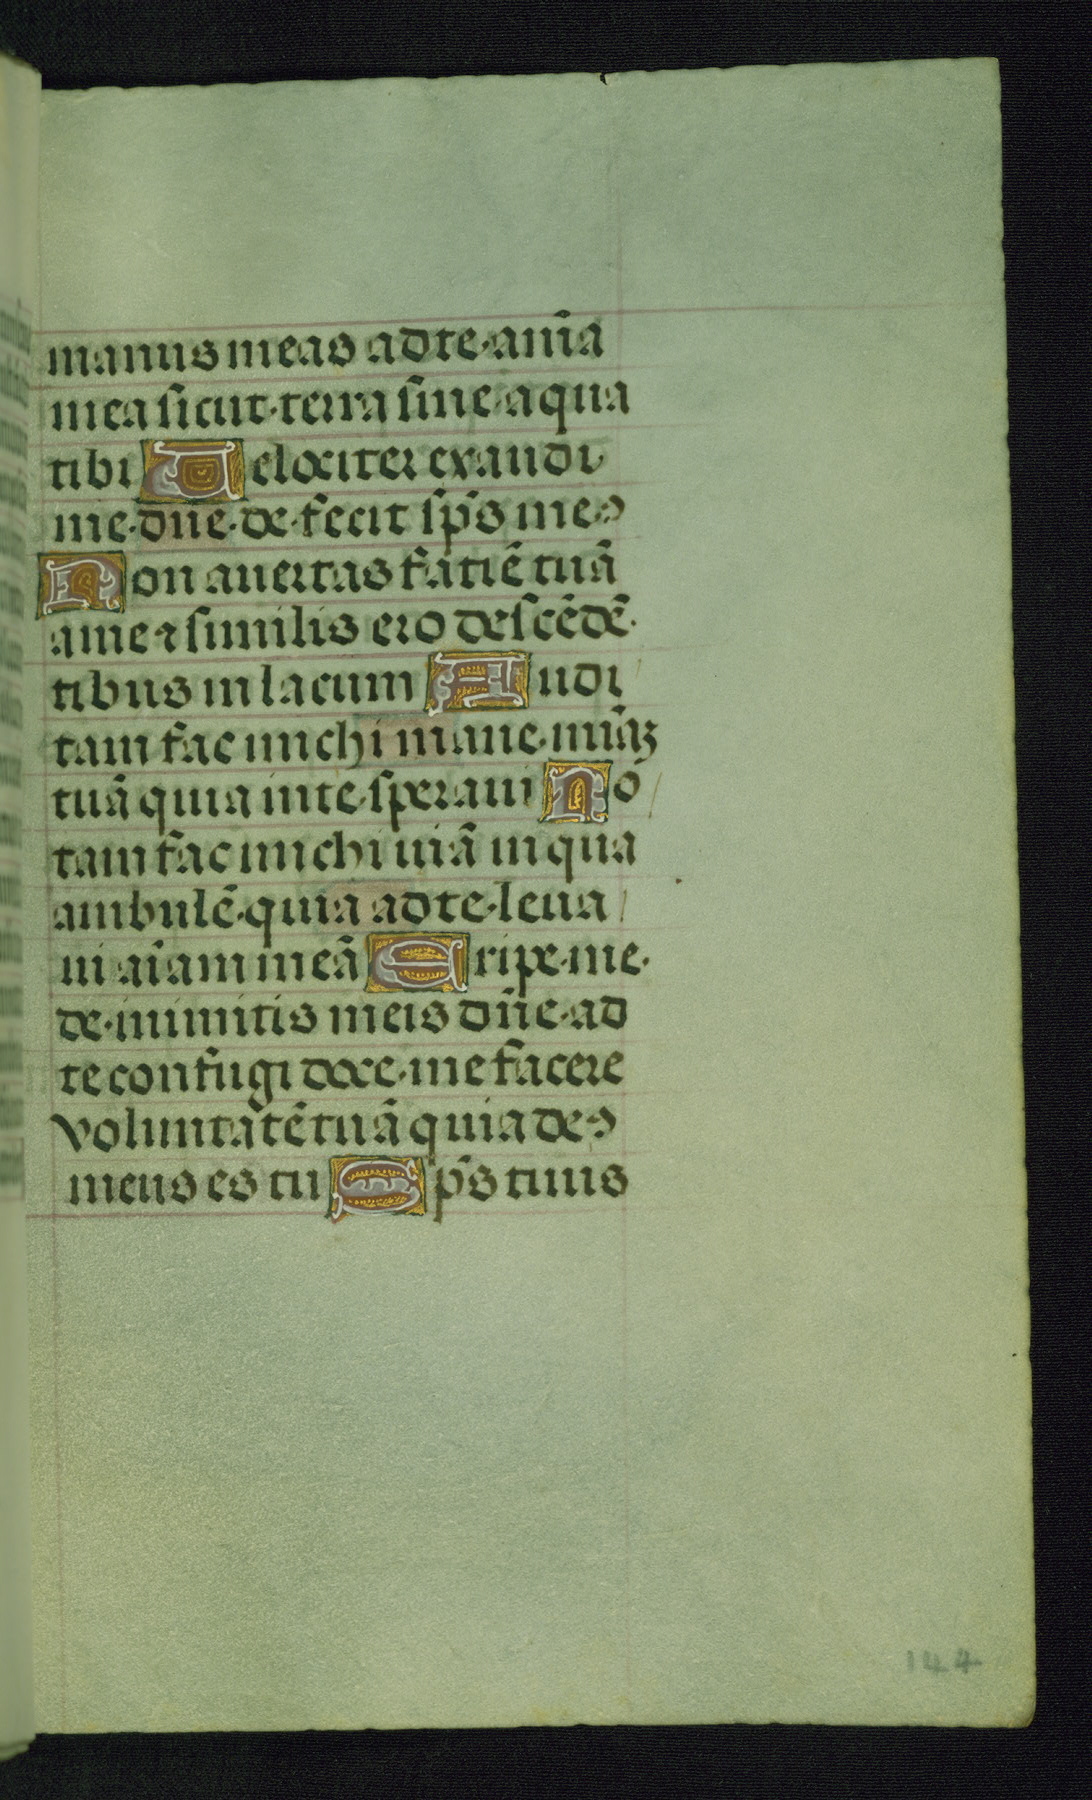 manus meas ad te · anīa
mea sicut · terra sine · aqua
tibi Velociter exaudi
me · dn̄e · de · fecit sp̄s me ·
Non auertas fatiē tuā
a me ⁊ similis ero descēdē ·
tibus in lacum Audi
tam fac michi mane · mīāꝫ
tuā quia in te · speraui Nō
tam fac michi uiā in qua
ambulē · quia ad te · leua
ui aīam meā Eripe · me ·
de · inimitis meis dn̄e · ad
te confugi doce · me facere
voluntatē tuā quia de ·
meus es tu Sp̄s tuus
144